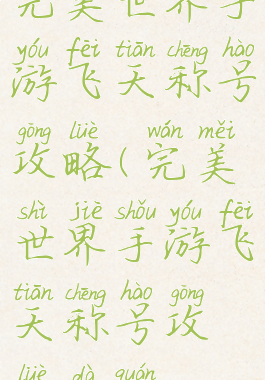 完美世界手
yóu fēi tiān chēng hào
游飞天称号
gōng lüè wán měi
攻略(完美
shì jiè shǒu yóu fēi
世界手游飞
tiān chēng hào gōng
天称号攻
lüè dà quán